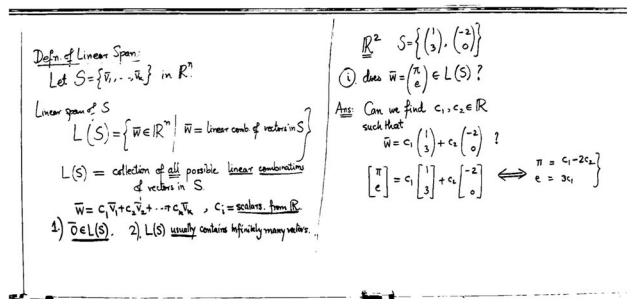 Defn. of Linear Span:
Let S={v̄₁, . . , v̄ₖ} in ℝⁿ.
Linear span of S
L(S)={w̄∈ℝⁿ | w̄ = linear comb. of vectors in S}
L(S) = collection of all possible linear combinations
of vectors in S.
w̄ = c₁v̄₁+c₂v̄₂+...+cₖv̄ₖ , cᵢ = scalars from ℝ.
1.) 0̄∈L(S). 2). L(S) usually contains infinitely many vectors.
ℝ² S={(1 3), (-2 0)}
(i) does w̄=(π e) ∈ L(S) ?
Ans: Can we find c₁, c₂∈ℝ
such that
w̄ = c₁(1 3) + c₂(-2 0) ?
[π e] = c₁[1 3] + c₂[-2 0] ⟺ π = c₁-2c₂
e = 3c₁ }